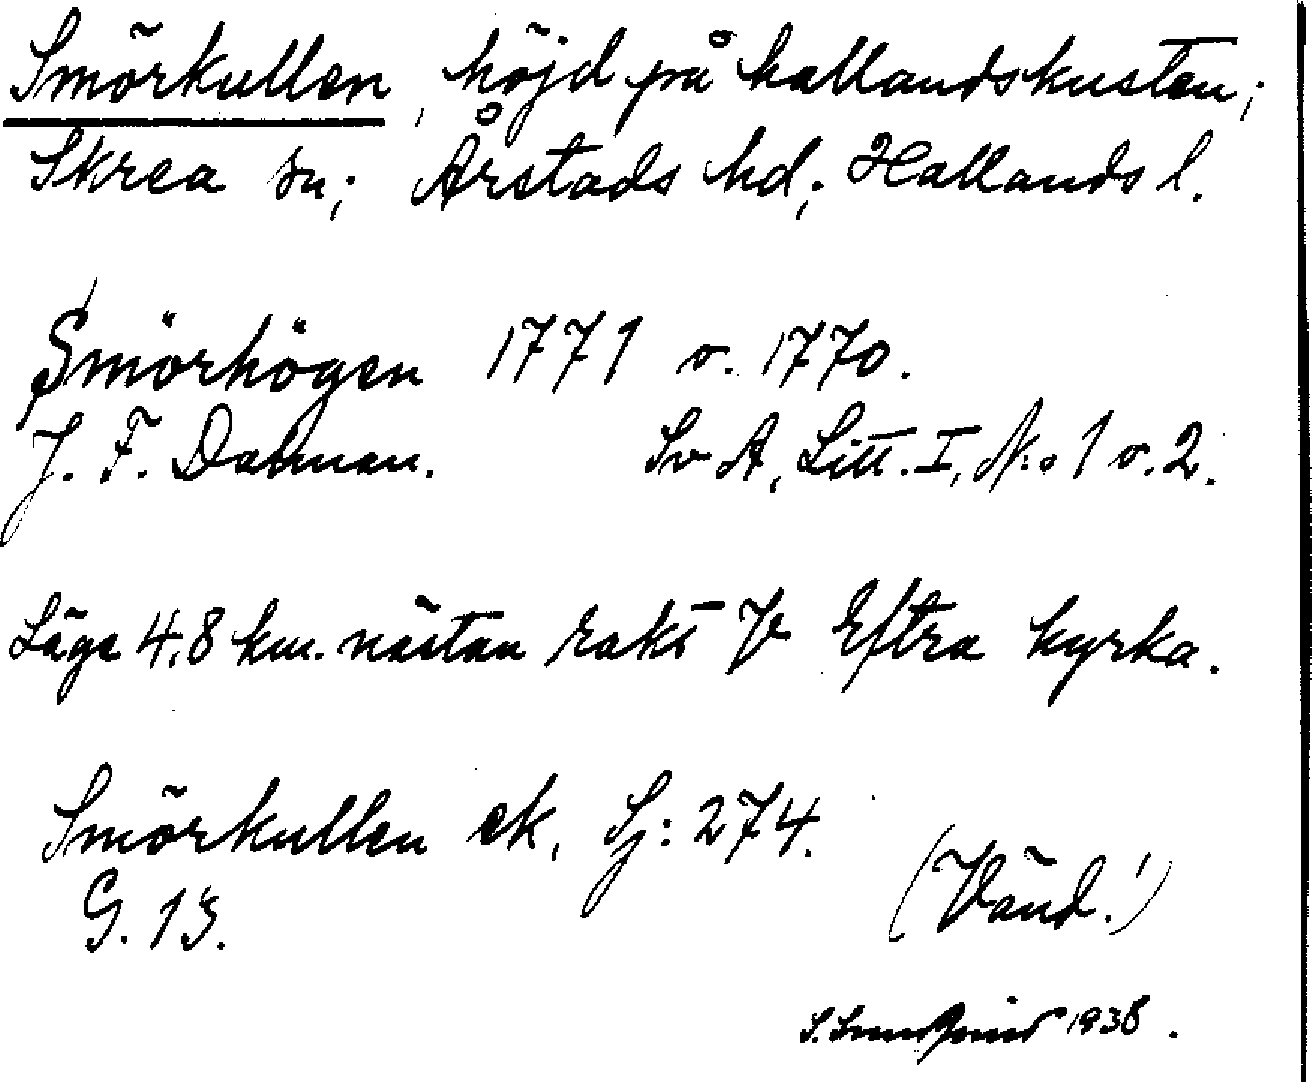 Smörkullen, höjd på hallandskusten;
Skrea sn; Årstads hd; Hallands l.
Smörhögen 1771 o. 1770.
J. F. Dalman. Sv A, Litt. I, N:o 1 o. 2.
Läge 4.8 km. nästan rakt V Eftra kyrka.
Smörkullen ek, Sj: 274.
G. 13.
(Vänd!)
S. 1938.